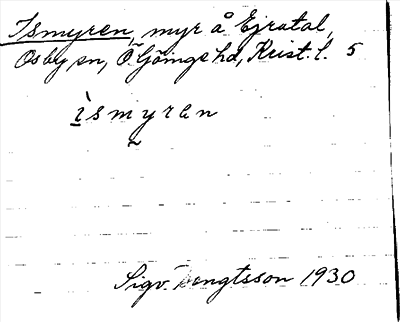 Ismyren, myr å Ejratal,
Osby sn, Ö. Göinge hd, Krist. l. 5
ismyren
Sigv. Bengtsson 1930